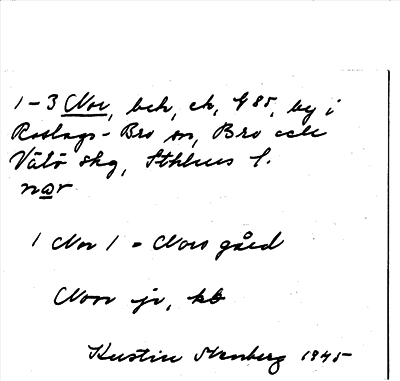 1-3 Nor, beb, ek, f 85, by i
Roslags-Bro sn, Bro och
Vätö skg, Sthlms l.
nωr
1 Nor 1 = Nors gård
Noor jr, kb
Kerstin Stenberg 1945